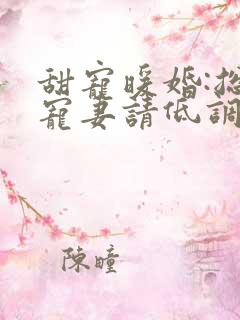 甜寵暖婚:總
寵妻請低調
陳瞳